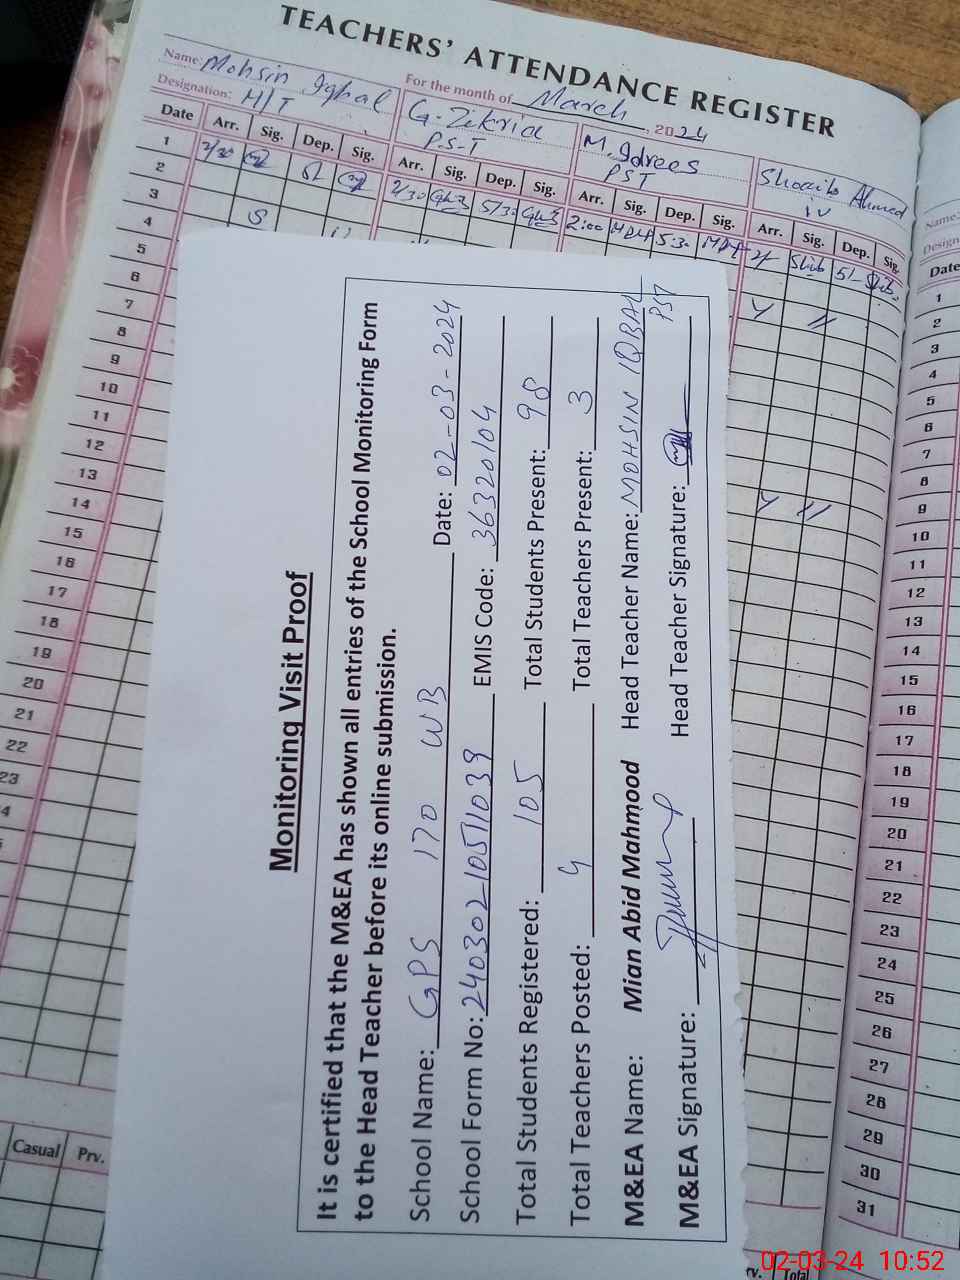 TEACHERS' ATTENDANCE REGISTER
Name: Mohsin Iqbal
For the month of March, 2024
Designation: H/T
G. Zikria
P.S.T
M. Idrees
PST
Shoaib Ahmed
Date Arr. Sig. Dep. Sig. Arr. Sig. Dep. Sig. Arr. Sig. Dep. Sig. Arr. Sig. Dep. Sig.
1 2/30 2/30 5/30 2:00 5:30 5/-
2
3
4
5
6
7
8
9
10
11
12
13
14
15
16
17
18
19
20
21
22
23
Casual Prv.
Monitoring Visit Proof
It is certified that the M&EA has shown all entries of the School Monitoring Form
to the Head Teacher before its online submission.
School Name: GPS 170 WB Date: 02-03-2024
School Form No: 24030210511039 EMIS Code: 36320104
Total Students Registered: 105 Total Students Present: 98
Total Teachers Posted: 4 Total Teachers Present: 3
M&EA Name: Mian Abid Mahmood Head Teacher Name: MOHSIN IQBAL PST
M&EA Signature: Head Teacher Signature:
Name:
Date
1
2
3
4
5
6
7
8
9
10
11
12
13
14
15
16
17
18
19
20
21
22
23
24
25
26
27
28
29
30
31
rv. Total
02-03-24 10:52